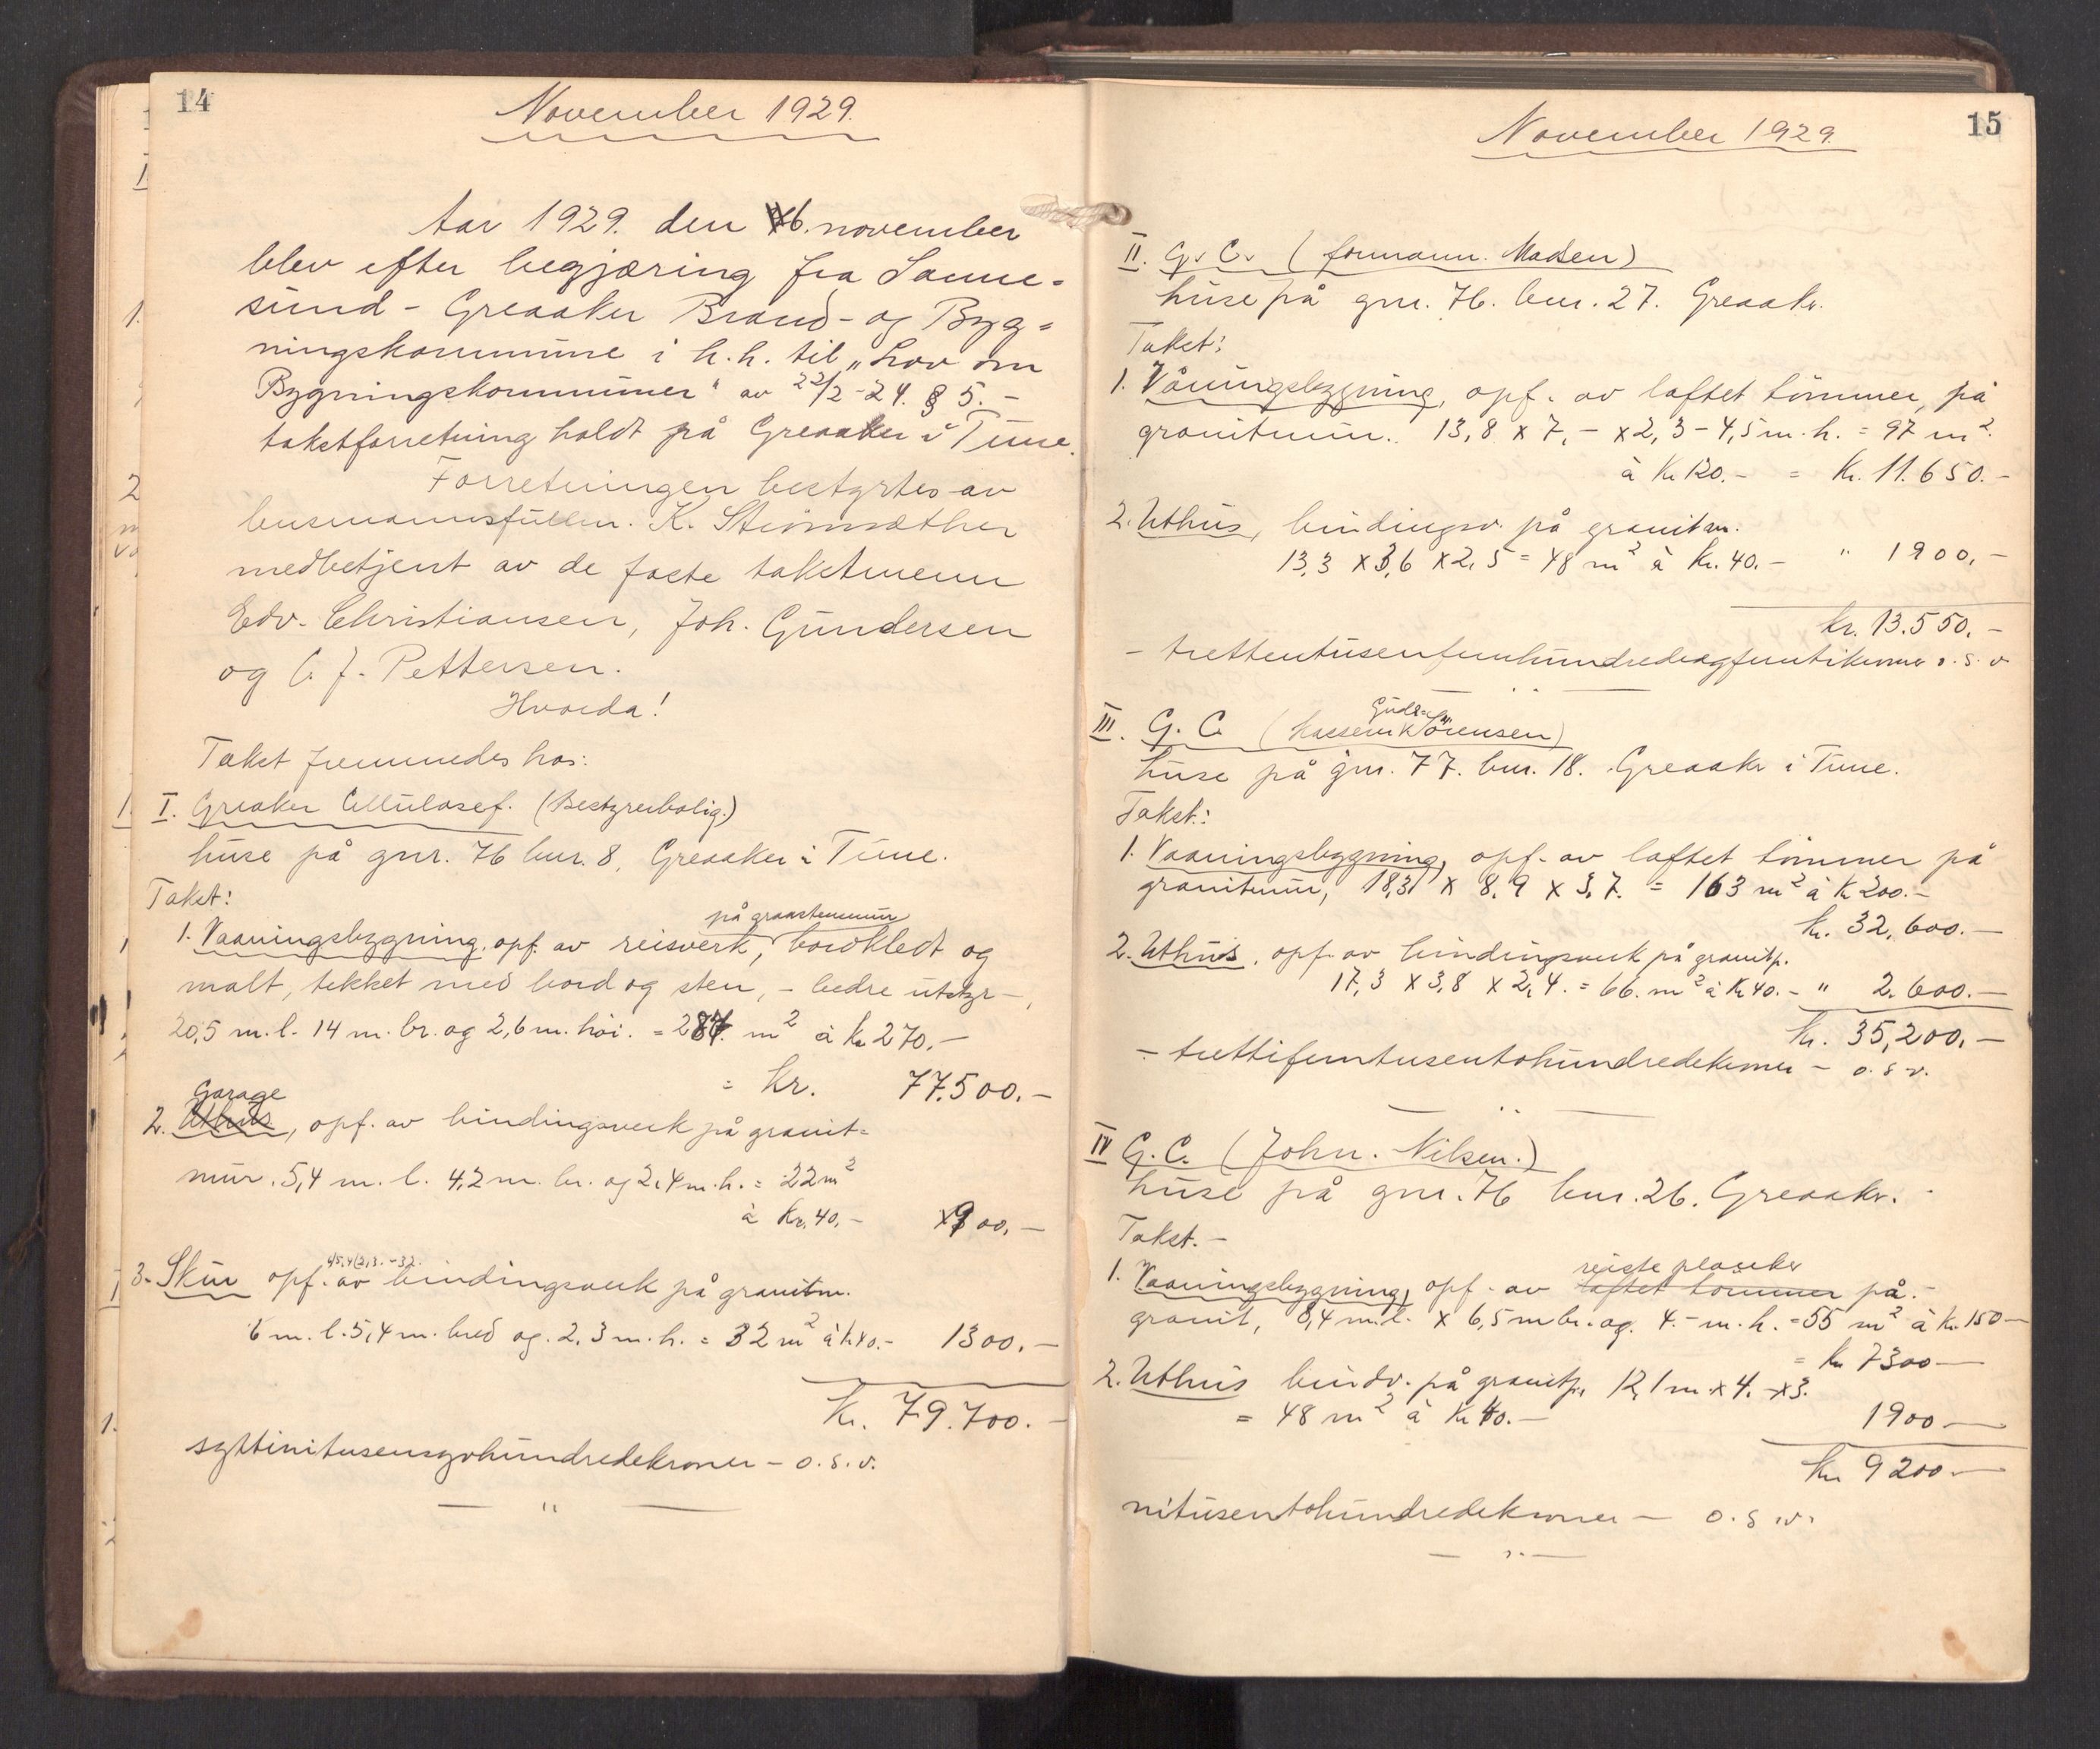 14
November 1929.
Aar 1929. den 16. november
blev efter begjæring fra Sanne-
sund - Greaaker Brand- og Byg-
ningskommune i h.h. til „Lov om
Bygningskommuner" av 22/2-24. § 5. -
takstforretning holdt på Greaaker i Tune.
Forretningen bestyrtes av
lensmannsfullm. K.
medbetjent av de faste takstmenn
Edv. Christiansen, Joh. Gundersen
og C. J. Pettersen.
Hvorda!
Takst fremmedes hos:
I. Greaker Cellulosef. (Bestyrerbolig.)
huse på gnr. 76 bnr. 8, Greaaker i Tune.
Takst:
på graastensmur
1. Vaaningsbygning, opf. av reisverk, bordkledt og
malt, tekket med bord og sten, - bedre utstyr -,
20,5 m. l. 14 m. br. og 2,6 m. høi. = 287 m² à kr 270.-
= kr. 77.500.-
Garage
2. Uthus, opf. av bindingsverk på granit-
mur. 5,4 m. l. 4,2 m. br. og 2,4 m. h. = 22 m²
à Kr. 40,- 900,-
3. Skur opf. av bindingsverk på granitm.
6 m. l. 5,4 m. bred og. 2,3 m. h. = 32 m² à k 40.- 1300.-
Kr. 79.700.-
syttinitusensyvhundredekroner - o. s. v.
— " —
15
November 1929.
II. G. C. (formann. Madsen)
huse på gnr. 76. bnr. 27. Greaaker.
Takst:
1. Våningsbygning, opf. av laftet tømmer, på
granitmur. 13,8 x 7,- x 2,3 - 4,5 m. h. = 97 m².
à Kr 120.- = Kr. 11.650.-
2. Uthus, bindingsv. på granitm.
13,3 x 3,6 x 2,5 = 48 m² à Kr. 40.- " 1900,-
kr. 13.550.-
- trettentusenfemhundredeogfemtikroner o. s. v
III. G. C. (kasserer Sørensen)
huse på gnr. 77. bnr. 18. Greaaker i Tune.
Takst:
1. Vaaningsbygning, opf. av laftet tømmer på
granitmur, 18,3 x 8,9 x 3,7. = 163 m² à Kr 200.-
Kr. 32,600.-
2. Uthus, opf. av bindingsverk på granitp.
17,3 x 3,8 x 2,4. = 66. m² à Kr 40.- " 2.600.-
Kr. 35,200.-
- trettifemtusentohundredekroner - o. s. v.
IV G. C. (John. Nilsen.)
huse på gnr. 76 bnr. 26. Greaaker.
Takst.-
reiste planker
1. Vaaningsbygning, opf. av laftet tømmer på.-
granit, 8,4 m. l. x 6,5 m br. og. 4.- m. h. = 55 m² à Kr. 150-
= Kr 7300-
2. Uthus bindv. på granitp. 12,1 m. x 4. - x 3.
= 48 m² à Kr 40.- 1900-
Kr 9200-
nitusentohundredekroner - o. s. v.
— " —